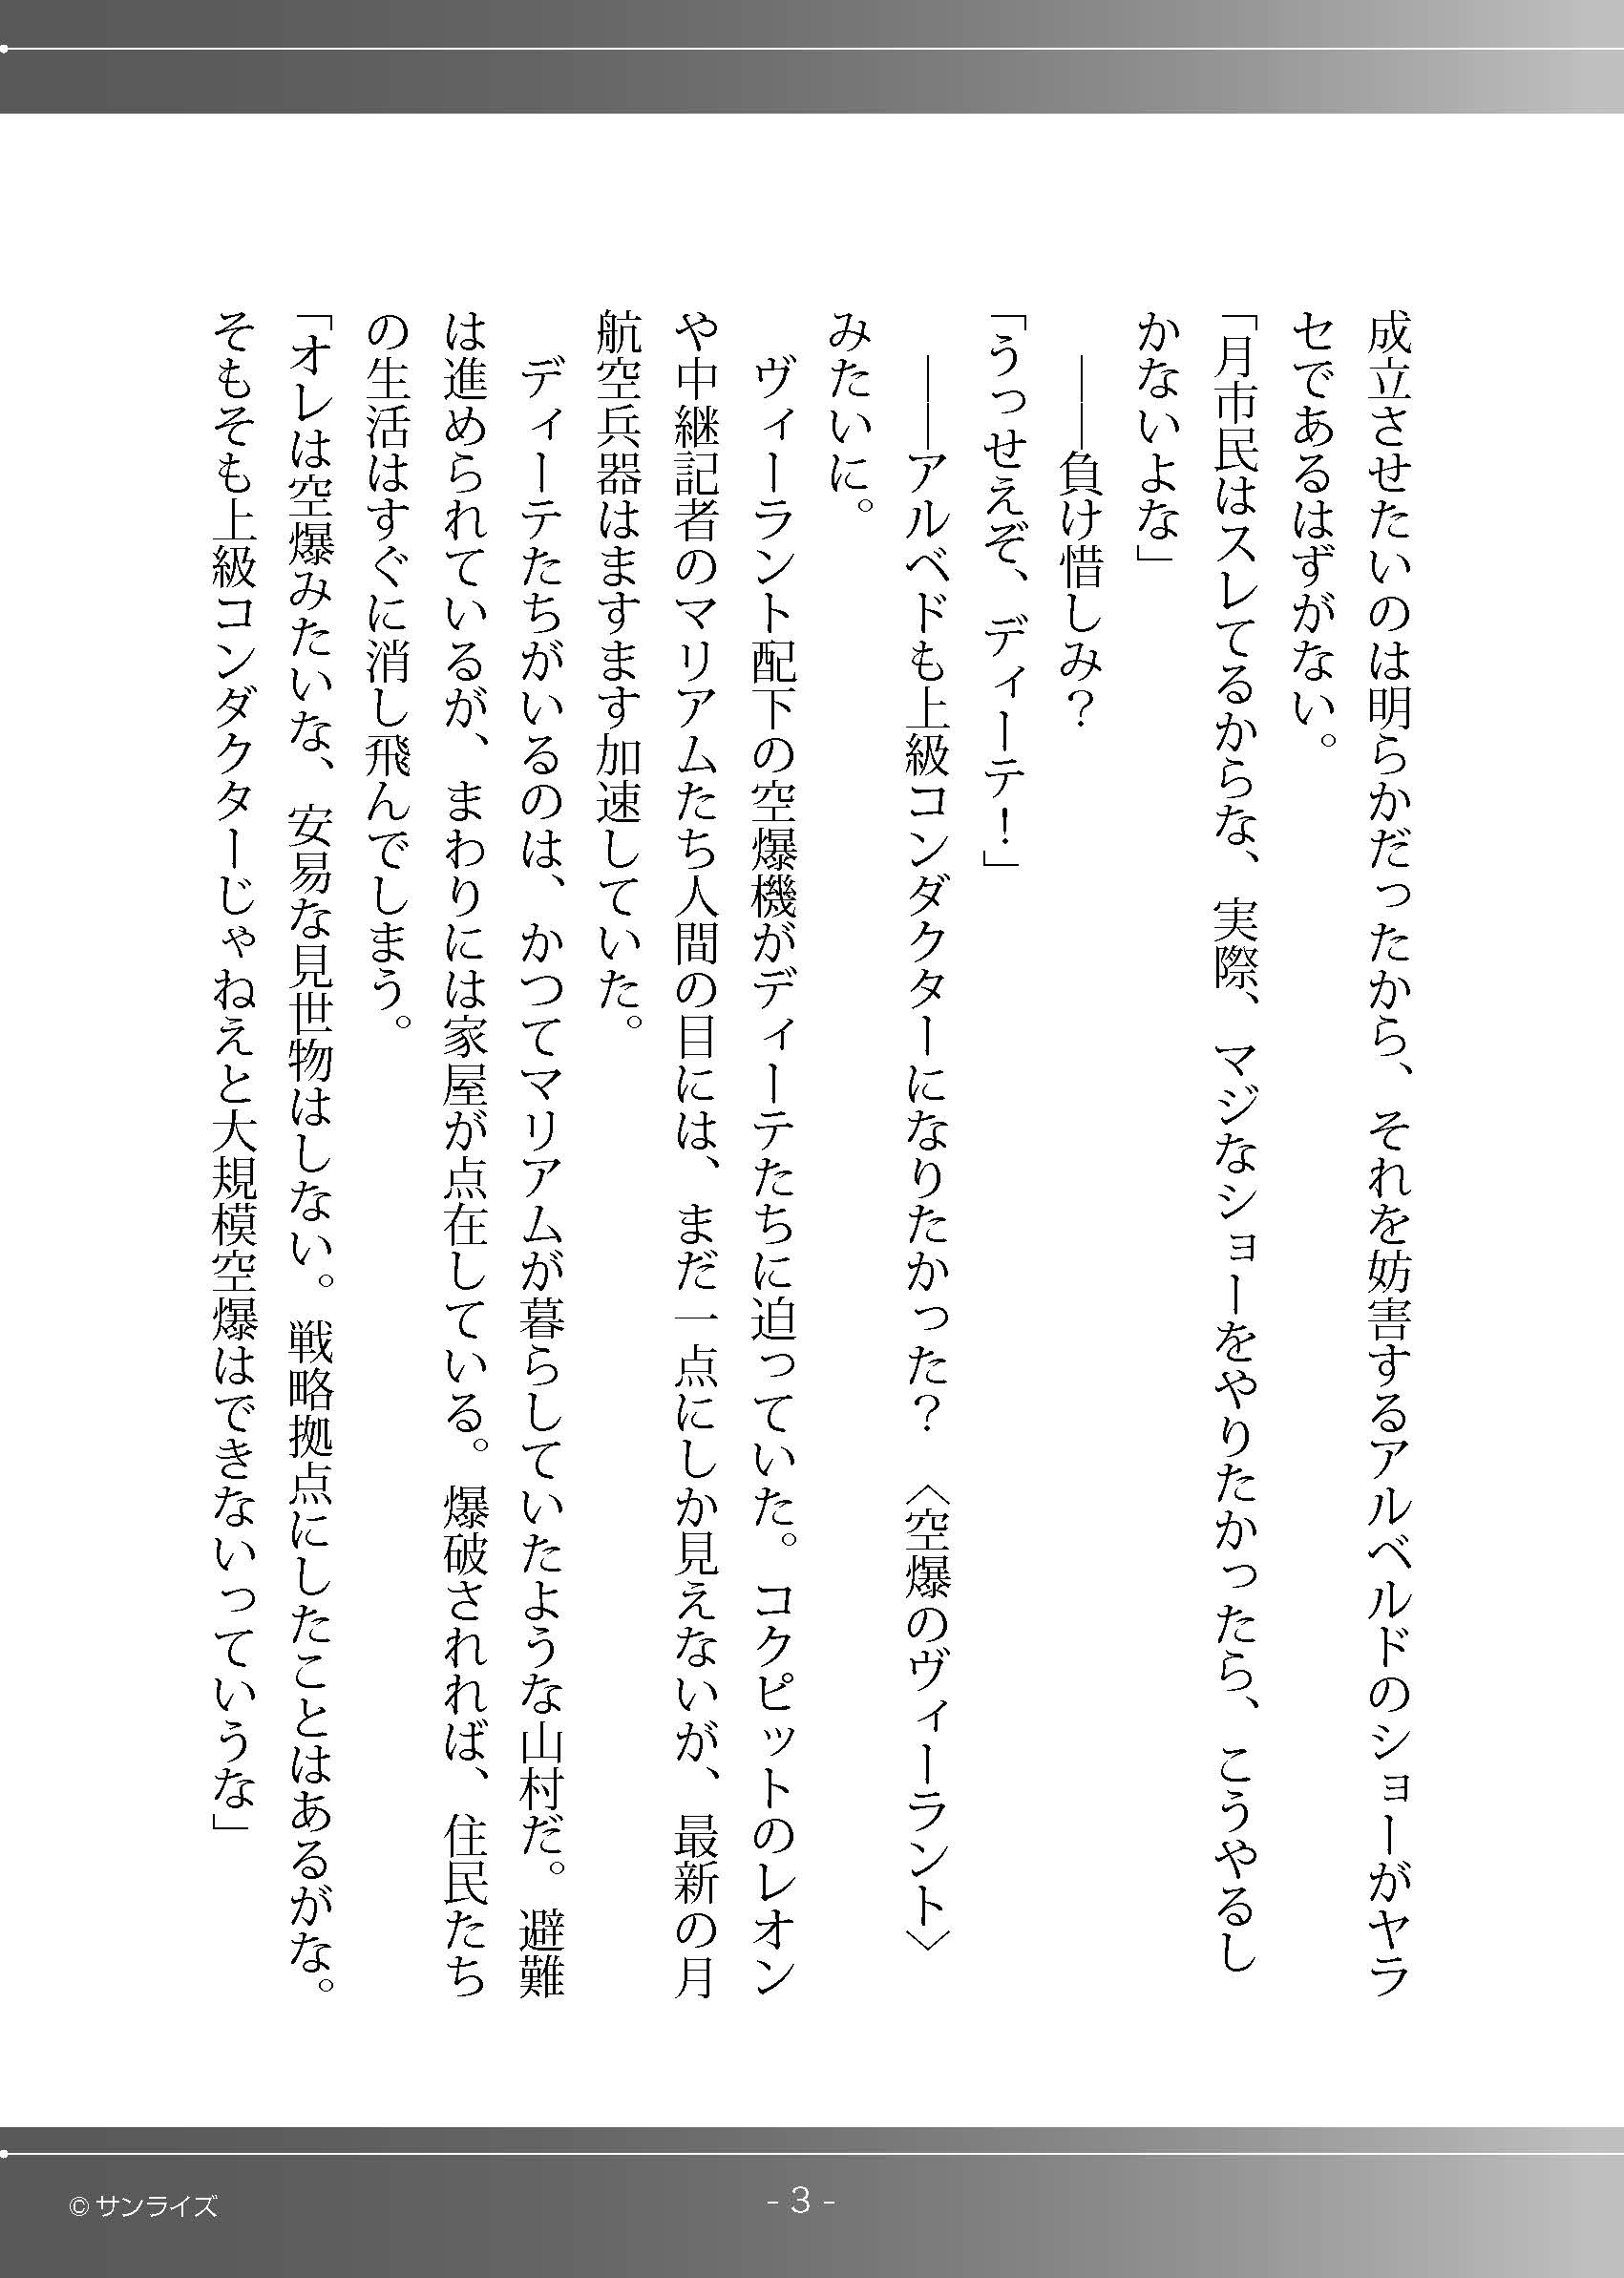 成立させたいのは明らかだったから、それを妨害するアルベルドのショーがヤラ
セであるはずがない。
「月市民はスレてるからな、実際、マジなショーをやりたかったら、こうやるし
かないよな」
――負け惜しみ？
「うっせえぞ、ディーテ！」
――アルベドも上級コンダクターになりたかった？　〈空爆のヴィーラント〉
みたいに。
ヴィーラント配下の空爆機がディーテたちに迫っていた。コクピットのレオン
や中継記者のマリアムたち人間の目には、まだ一点にしか見えないが、最新の月
航空兵器はますます加速していた。
ディーテたちがいるのは、かつてマリアムが暮らしていたような山村だ。避難
は進められているが、まわりには家屋が点在している。爆破されれば、住民たち
の生活はすぐに消し飛んでしまう。
「オレは空爆みたいな、安易な見世物はしない。戦略拠点にしたことはあるがな。
そもそも上級コンダクターじゃねえと大規模空爆はできないっていうな」
© サンライズ
- 3 -